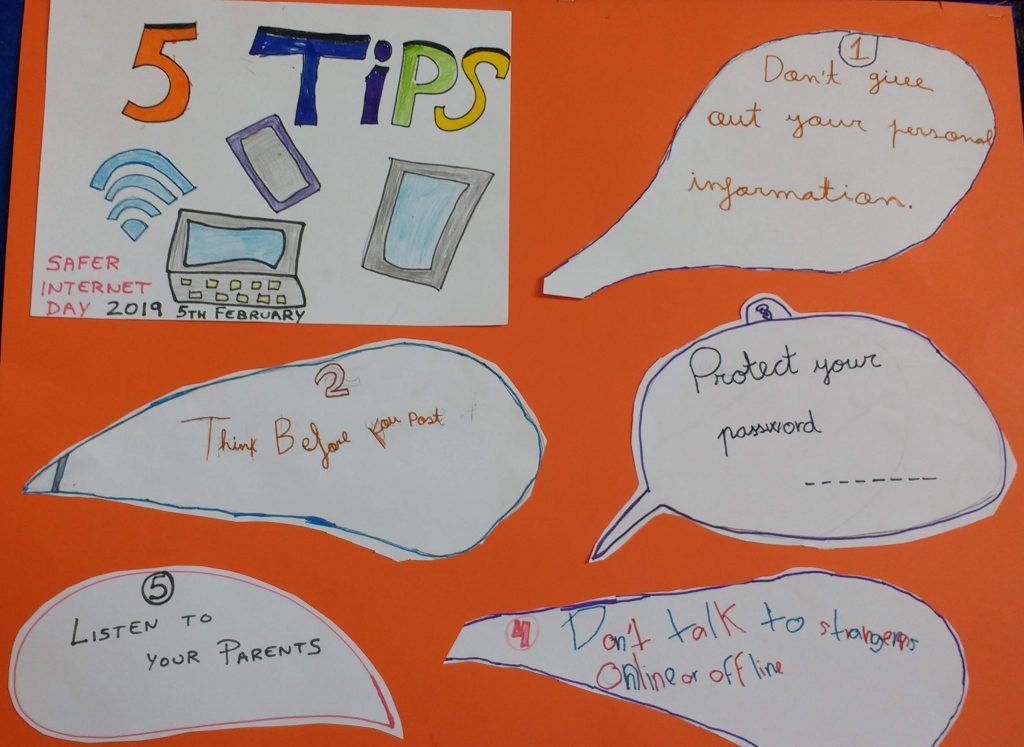 5 TiPS
SAFER
INTERNET
DAY 2019 5TH FEBRUARY
1
Don't give
out your personal
information.
2
Think Before you Post
3
Protect your
password
--------
4
Don't talk to strangers
Online or offline
5
LISTEN TO
YOUR PARENTS